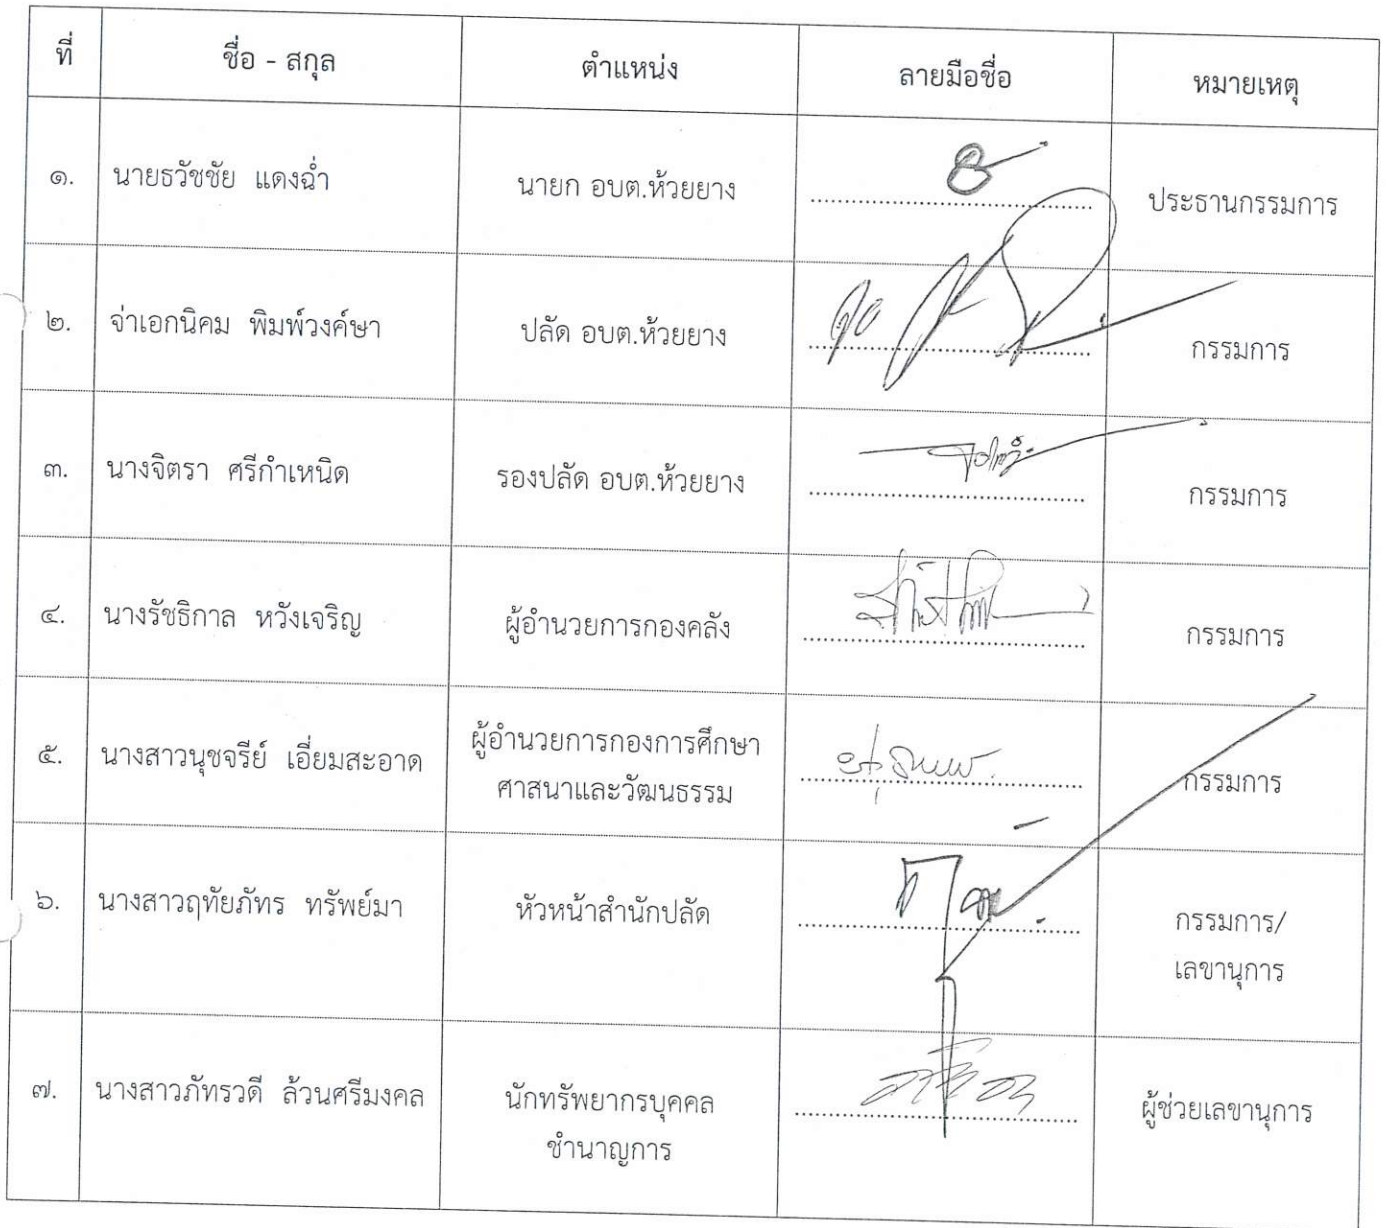 ที่ ชื่อ - สกุล ตำแหน่ง ลายมือชื่อ หมายเหตุ
๑. นายธวัชชัย แดงฉ่ำ นายก อบต.ห้วยยาง ประธานกรรมการ
๒. จ่าเอกนิคม พิมพ์วงค์ษา ปลัด อบต.ห้วยยาง กรรมการ
๓. นางจิตรา ศรีกำเหนิด รองปลัด อบต.ห้วยยาง กรรมการ
๔. นางรัชธิกาล หวังเจริญ ผู้อำนวยการกองคลัง กรรมการ
๕. นางสาวนุชจรีย์ เอี่ยมสะอาด ผู้อำนวยการกองการศึกษา กรรมการ
ศาสนาและวัฒนธรรม
๖. นางสาวฤทัยภัทร ทรัพย์มา หัวหน้าสำนักปลัด กรรมการ/
เลขานุการ
๗. นางสาวภัทรวดี ล้วนศรีมงคล นักทรัพยากรบุคคล ผู้ช่วยเลขานุการ
ชำนาญการ